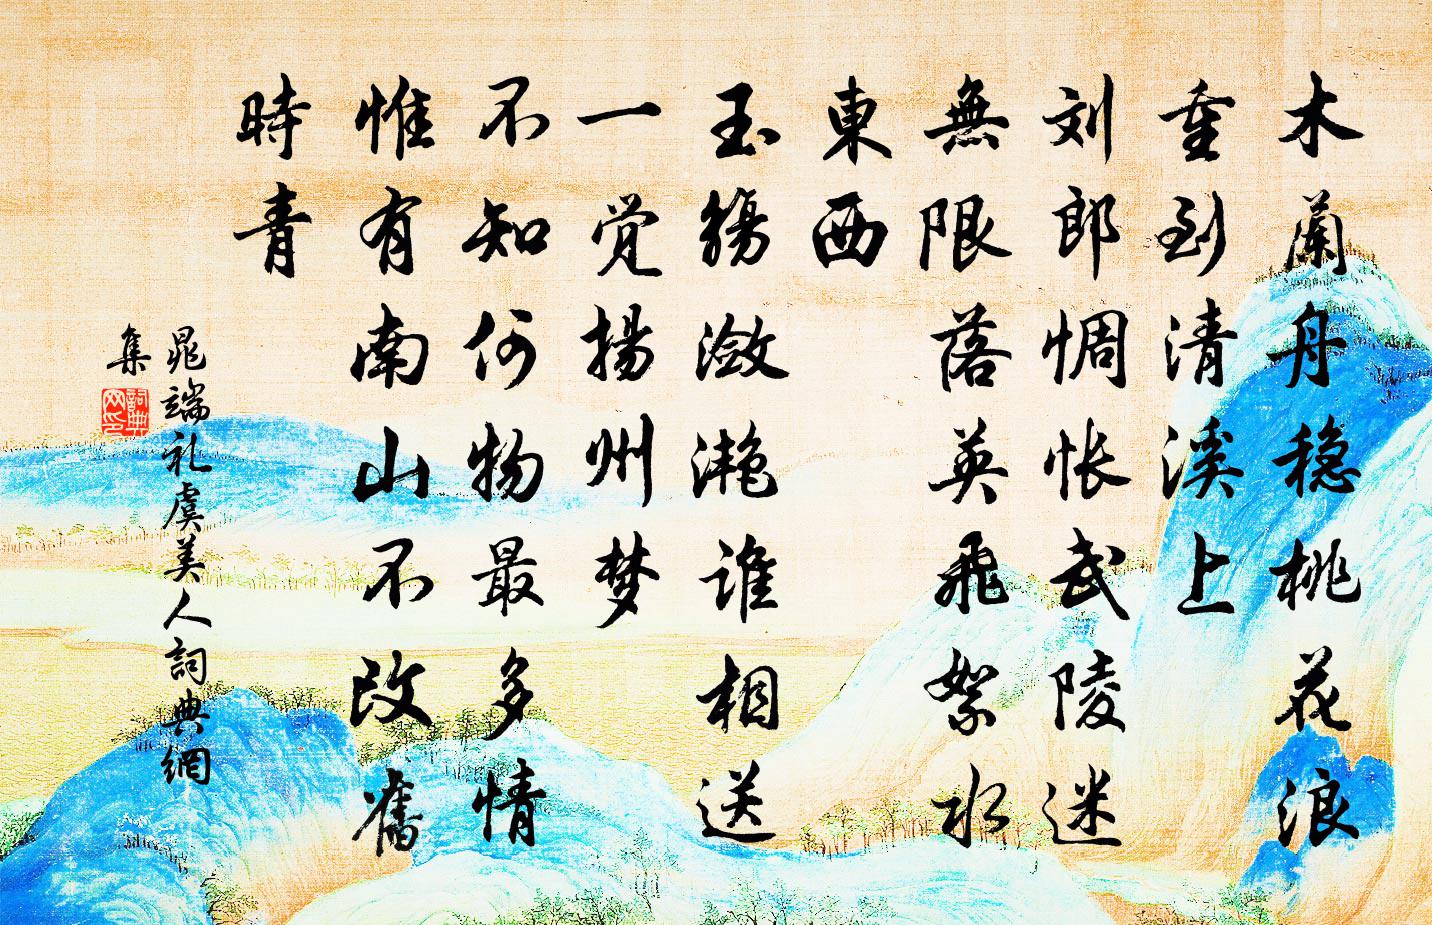 木蘭舟稳桃花浪
重到清溪上
刘郎惆怅武陵迷
無限落英飛絮水
東西
玉觴潋滟谁相送
一觉揚州梦
不知何物最多情
惟有南山不改舊
時青
晁端礼虞美人詞典網
集
詞典
网印